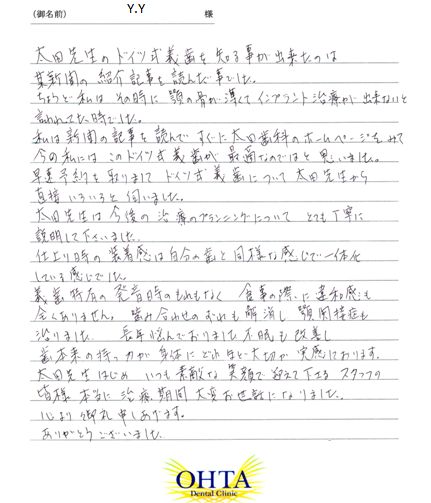 (御名前) Y.Y 様
太田先生のドイツ式義歯を知る事が出来たのは
某新聞の紹介記事を読んだ事でした。
ちょうど私はその時に顎の骨が薄くてインプラント治療が出来ないと
言われてた時でした。
私は新聞の記事を読んですぐに太田歯科のホームページをみて
今の私にはこのドイツ式義歯が最適なのではと思いました。
早速予約を取りましてドイツ式義歯について太田先生から
直接いろいろと伺いました。
太田先生は今後の治療のプランニングについてとても丁寧に
説明して下さいました。
仕上り時の装着感は自分の歯と同様な感じで一体化
している感じでした。
義歯特有の発音時のもれもなく 食事の際に違和感も
全くありません。噛み合わせのずれも解消し 顎関節症も
治りました。長年悩んでおりました不眠も改善し
歯本来の持つ力が身体にどれほど大切か実感しております。
太田先生はじめ いつも素敵な笑顔で迎えて下さるスタッフの
皆様 本当に治療期間大変お世話になりました。
心より御礼申しあげます。
ありがとうございました。
OHTA
Dental Clinic